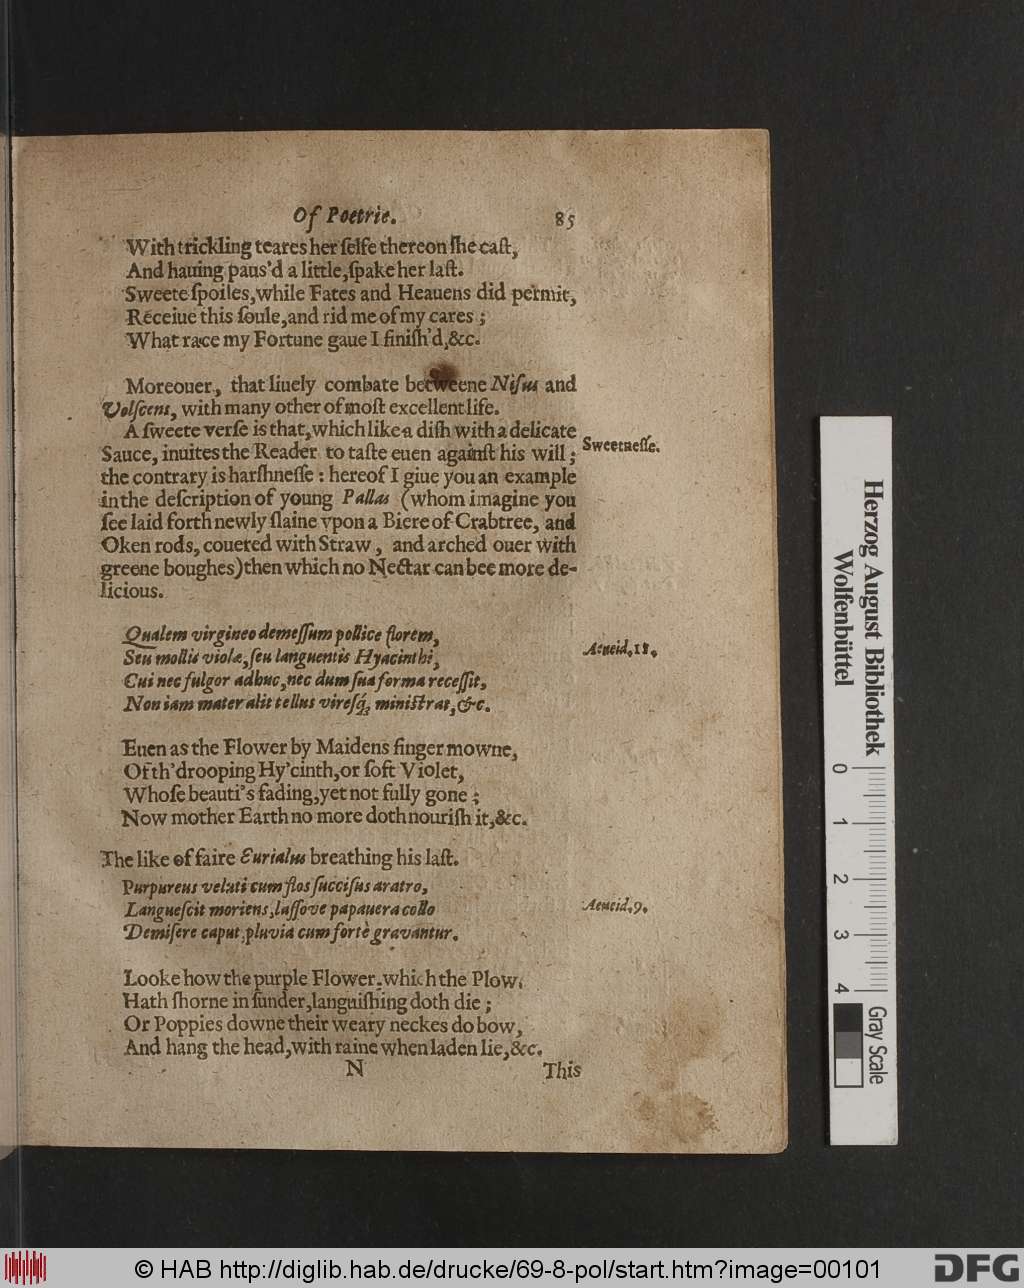 Of Poetrie. 85
With trickling teares her ſelfe thereon ſhe caſt,
And hauing paus'd a little, ſpake her laſt.
Sweete ſpoiles, while Fates and Heauens did permit,
Receiue this ſoule, and rid me of my cares ;
What race my Fortune gaue I finiſh'd, &c.
Moreouer, that liuely combate betweene Niſus and
Volſcens, with many other of moſt excellent life.
A ſweete verſe is that, which like a diſh with a delicate
Sauce, inuites the Reader to taſte euen againſt his will ;
Sweetneſſe.
the contrary is harſhneſſe : hereof I giue you an example
in the deſcription of young Pallas (whom imagine you
ſee laid forth newly ſlaine vpon a Biere of Crabtree, and
Oken rods, couered with Straw, and arched ouer with
greene boughes) then which no Nectar can bee more de-
licious.
Qualem virgineo demeſſum pollice florem,
Seu mollis violæ, ſeu languentis Hyacinthi,
Aeneid. 18.
Cui nec fulgor adhuc, nec dum ſua forma receſſit,
Non iam mater alit tellus vireſq́; miniſtrat, &c.
Euen as the Flower by Maidens finger mowne,
Of th'drooping Hy'cinth, or ſoft Violet,
Whoſe beauti's fading, yet not fully gone ;
Now mother Earth no more doth nouriſh it, &c.
The like of faire Eurialus breathing his laſt.
Purpureus veluti cum flos ſucciſus aratro,
Langueſcit moriens, laſſove papauera collo
Aeneid. 9.
Demiſere caput, pluvia cum fortè gravantur.
Looke how the purple Flower, which the Plow,
Hath ſhorne in ſunder, languiſhing doth die ;
Or Poppies downe their weary neckes do bow,
And hang the head, with raine when laden lie, &c.
N This
Herzog August Bibliothek
Wolfenbüttel
0 1 2 3 4
Gray Scale
© HAB http://diglib.hab.de/drucke/69-8-pol/start.htm?image=00101
DFG